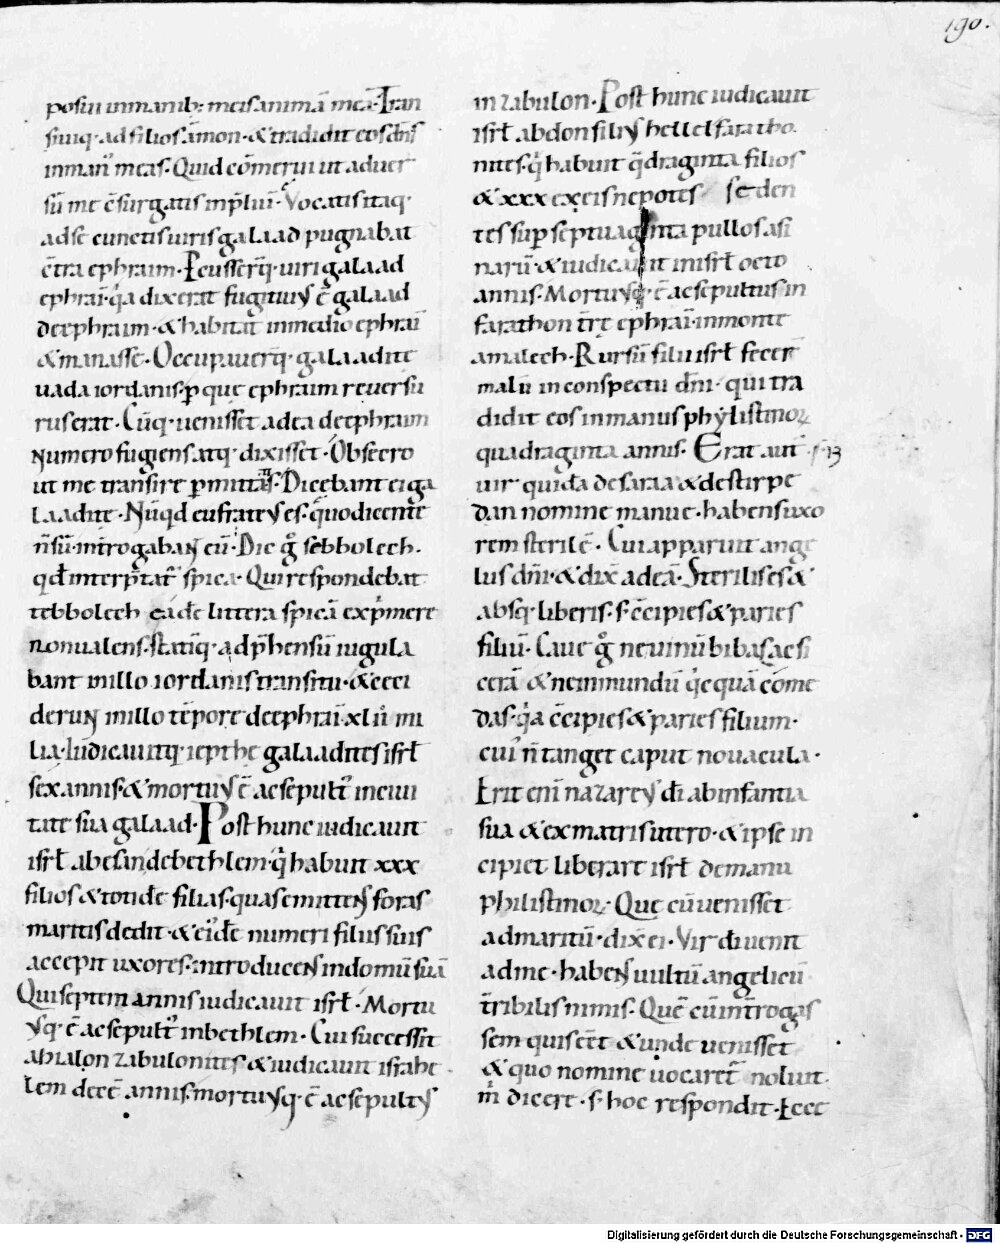 190.
posui in manib; meis animā meā. Tran
siuiq· ad filios amon· & tradidit eos dn̄s
in man' meas· Quid cōmerui ut aduer
sū me c̄surgatis in p̄lium· Vocatis itaq·
ad se cunctis uiris galaad pugnabat
c̄tra ephraim· Pcusserūq· uiri galaad
ephraī· q̄a dixerat fugitiuus ē galaad
de ephraim· & habitat in medio ephraī
& manasse· Occupauerūq· galaadite
uada iordanis· p que ephraim reuersu
rus erat· Cūq· uenisset ad ea de ephraim
numero fugiens atq· dixisset· Obsecro
ut me transire pmittatis· Dicebant ei ga
laadite· Nūqd eufrateus es· quo dicente
n̄ sū· int̄rogabant eū· Dic g° sebbolech·
qd̄ interp̄tat' spica· Qui respondebat
tebbolech eadē littera spicā exp̄mere
non ualens· statīq· adp̄hensū iugula
bant in illo iordanis transitu· & ceci
derunt in illo tēpore de ephraī xl ii mi
lia· Iudicauitq· iepthe galaadites isrł
sex annis· & mortuus ē ac sepult' in ciui
tate sua galaad· Post hunc iudicauit
isrł abesan de bethlem· q̄ habuit xxx
filios & totidē filias· quas emittens foras
maritis dedit· & eiudē numeri filiis suis
accepit uxores· introducens in domū suā
Qui septem annis iudicauit isrł· Mortu
usq· ē ac sepult' in bethlem· Cui successit
ahialon zabulonites· & iudicauit israhe
lem decē annis· mortuusq· ē ac sepultus
in zabulon· Post hunc iudicauit
isrł abdon filius hellel faratho
nites· q̄ habuit q̄draginta filios
& xxx ex eis nepotes seden
tes sup septuaginta pullos asi
narū· & iudicauit in isrł octo
annis· Mortuusq· ē ac sepultus in
farathon t̄re ephraī· in monte
amalech· Rursū filii isrł fecert
malū in conspectu dn̄i· qui tra
didit eos in manus phylistinoꝝ
quadraginta annis· Erat aut̄ · 13
uir quidā de saraa & de stirpe
dan nomine manue· habens uxo
rem sterilē· Cui apparuit ange
lus dn̄i· & dix̄ ad eā· Sterilis es &
absq· liberis· s; c̄cipies & paries
filiū· Caue g° ne uinū bibas ac si
cerā & ne inmundū q̄cquā come
das· q̄a c̄cipies & paries filium·
cui' n̄ tanget caput nouacula·
Erit enī nazareus di ab infantia
sua & ex matris utero· & ipse in
cipiet liberare isrł de manu
philistinoꝝ· Que cū uenisset
ad maritū· dix̄ ei· Vir di uenit
ad me· habens uultū angelicū
t̄ribilis nimis· Quē cū int̄rogas
sem quis eēt & unde uenisset
& quo nomine uocaret' noluit
m̄ dicere· s; hoc respondit· Ecce
Digitalisierung gefördert durch die Deutsche Forschungsgemeinschaft · DFG